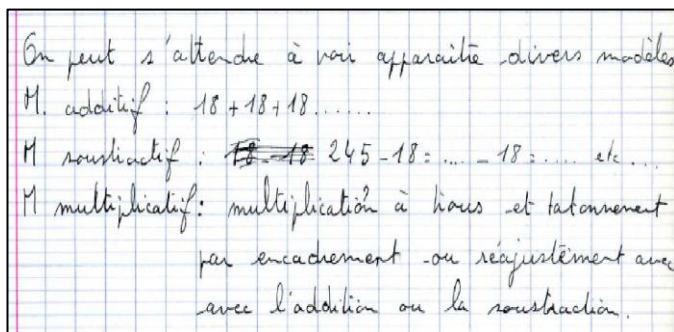 On peut s'attendre à voir apparaitre divers modèles
M. additif : 18 + 18 + 18 ......
M soustractif : 245 - 18 = .... - 18 = ..... etc ...
M multiplicatif : multiplication à trous et tatonnement
par encadrement ou réajustement avec
avec l'addition ou la soustraction.